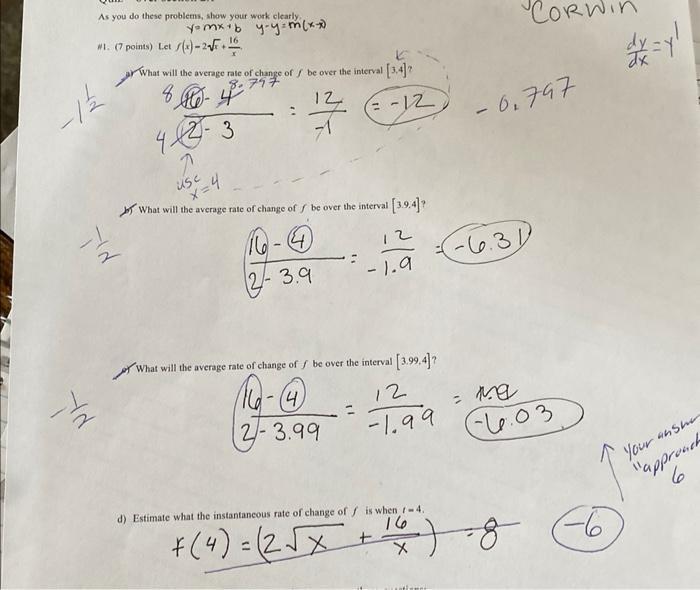 As you do these problems, show your work clearly.
CORWIN
y=mx+b y-y=m(x-x)
#1. (7 points) Let f(x)=2√x+16/x.
dy/dx=y'
a) What will the average rate of change of f be over the interval [3,4]?
-1 1/2
8 16 - 4 8.797
4 2 - 3
= 12/-1 = -12
-0.797
use
x=4
b) What will the average rate of change of f be over the interval [3.9,4]?
-1/2
16-4 / 2-3.9 = 12/-1.9 = -6.31
c) What will the average rate of change of f be over the interval [3.99,4]?
-1/2
16-4 / 2-3.99 = 12/-1.99 = -6.03
↑ your
"approach
6
d) Estimate what the instantaneous rate of change of f is when t=4.
f(4)=(2√x + 16/x) =8 -6